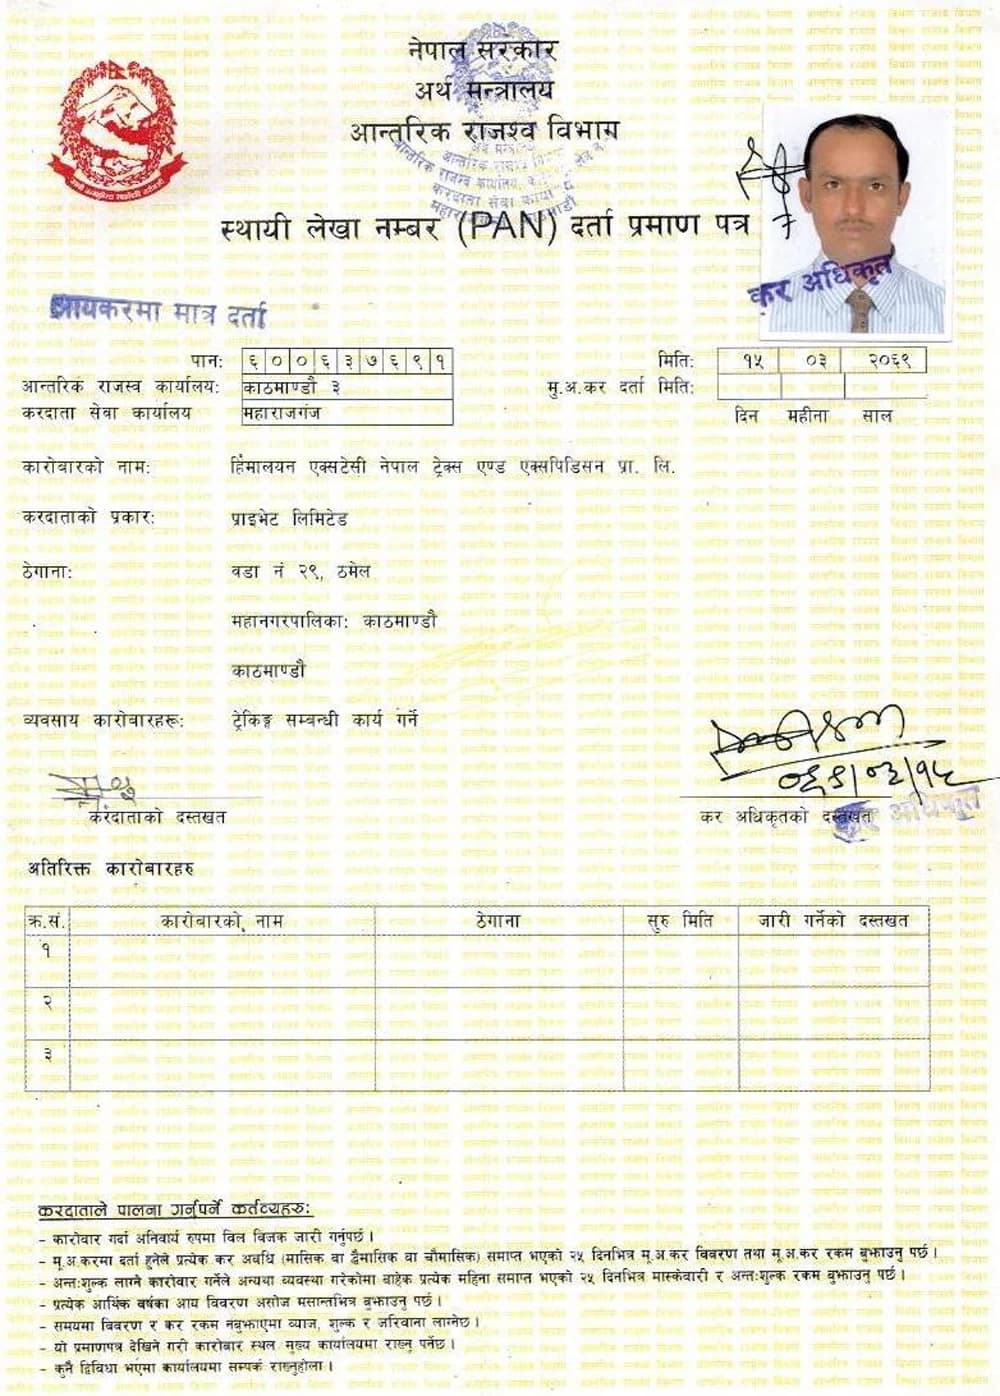 नेपाल सरकार
अर्थ मन्त्रालय
आन्तरिक राजश्व विभाग
स्थायी लेखा नम्बर (PAN) दर्ता प्रमाण पत्र
कर अधिकृत
आयकरमा मात्र दर्ता
पान: ६ ० ० ६ ३ ७ ६ ९ १
मिति: १५ ०३ २०६९
आन्तरिक राजस्व कार्यालय: काठमाण्डौ ३
मु.अ.कर दर्ता मिति:
करदाता सेवा कार्यालय महाराजगंज
दिन महीना साल
कारोबारको नाम: हिमालयन एक्सटेसी नेपाल ट्रेक्स एण्ड एक्सपिडिसन प्रा. लि.
करदाताको प्रकार: प्राइभेट लिमिटेड
ठेगाना: वडा नं २९, ठमेल
महानगरपालिका: काठमाण्डौ
काठमाण्डौ
व्यवसाय कारोबारहरू: ट्रेकिङ्ग सम्बन्धी कार्य गर्ने
करदाताको दस्तखत
कर अधिकृतको दस्तखत
कर अधिकृत
अतिरिक्त कारोबारहरु
क्र.सं. कारोबारको नाम ठेगाना सुरु मिति जारी गर्नेको दस्तखत
१
२
३
करदाताले पालना गर्नुपर्ने कर्तव्यहरु:
- कारोबार गर्दा अनिवार्य रुपमा विल विजक जारी गर्नुपर्छ ।
- मू.अ.करमा दर्ता हुनेले प्रत्येक कर अवधि (मासिक वा द्वैमासिक वा चौमासिक) समाप्त भएको २५ दिनभित्र मू.अ.कर विवरण तथा मू.अ.कर रकम बुझाउनु पर्छ ।
- अन्त:शुल्क लाग्ने कारोबार गर्नेले अन्यथा व्यवस्था गरेकोमा बाहेक प्रत्येक महिना समाप्त भएको २५ दिनभित्र मास्केवारी र अन्त:शुल्क रकम बुझाउनु पर्छ ।
- प्रत्येक आर्थिक वर्षका आय विवरण असोज मसान्तभित्र बुझाउनु पर्छ ।
- समयमा विवरण र कर रकम नबुझाएमा व्याज, शुल्क र जरिवाना लाग्नेछ ।
- यो प्रमाणपत्र देखिने गरी कारोबार स्थल मुख्य कार्यालयमा राख्नु पर्नेछ ।
- कुनै द्विविधा भएमा कार्यालयमा सम्पर्क राख्नुहोला ।